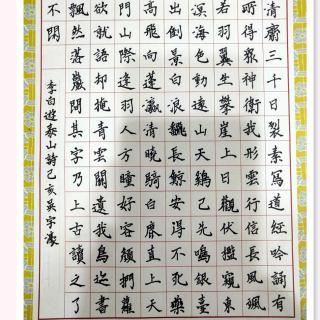 清齋三十日裂素寫道經吟誦有
所得衆神衛我形雲行信長風颯
若羽翼生攀崖上日觀伏檻窺東
溟海色動遠山天鷄已先鳴銀臺
出倒景白浪飜長鯨安得不死藥
高飛向蓬瀛清曉騎白鹿直上天
門山際逢羽人方瞳好容顏捫蘿
欲就語却掩青雲關遺我鳥迹書
飄然落巖間其字乃上古讀之了
不閑
李白遊泰山詩己亥吳宇